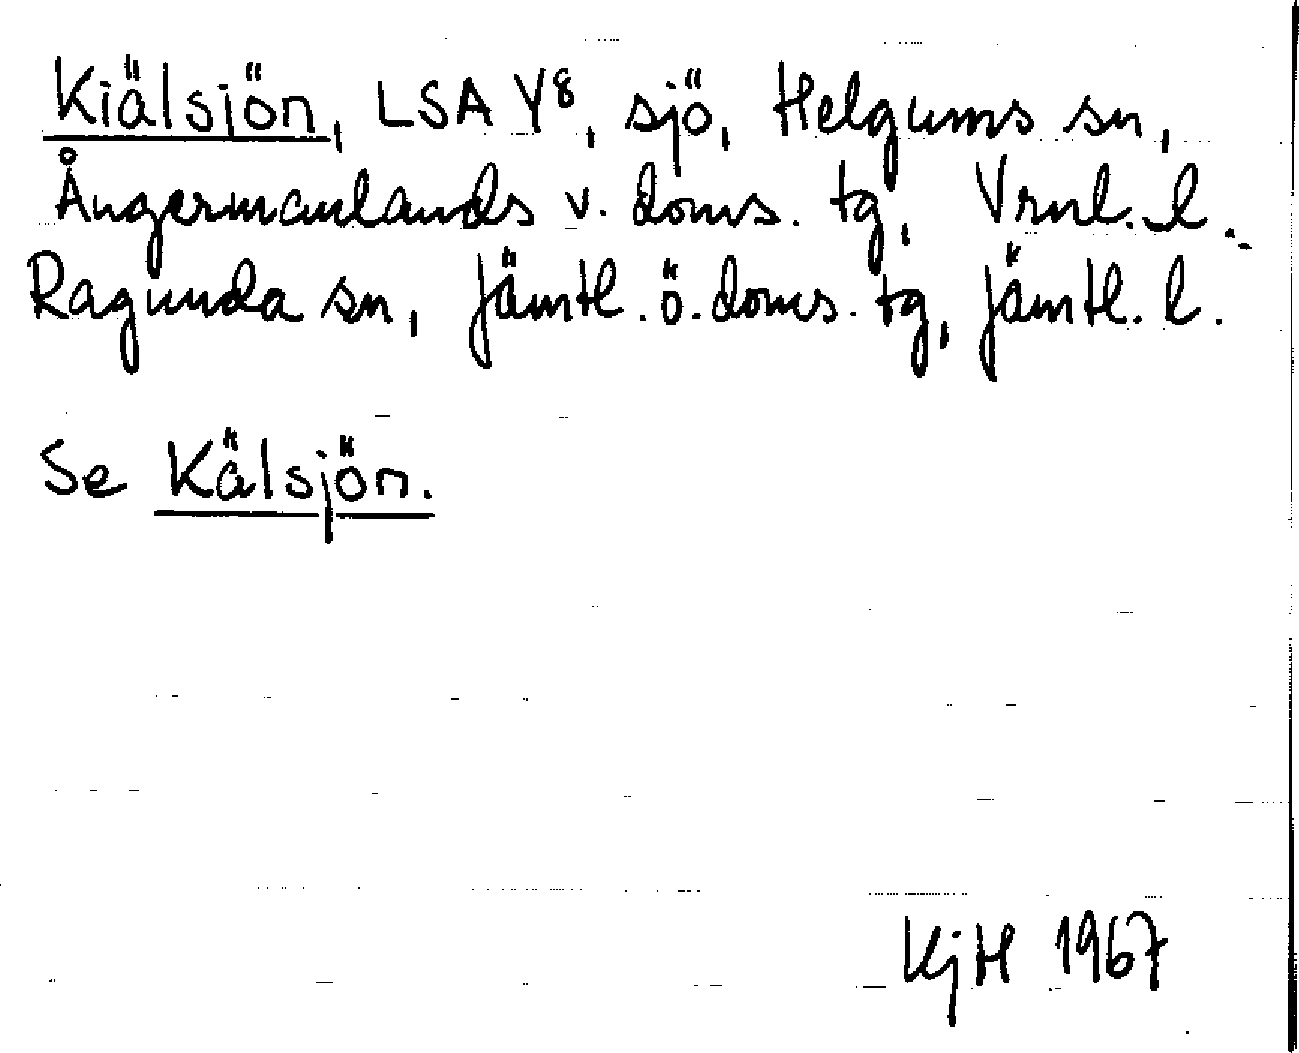 Kiälsiön, LSA Y8, sjö, Helgums sn,
Ångermanlands v. doms. tg, Vrnl. l.
Ragunda sn, Jämtl. ö. doms. tg, Jämtl. l.
Se Kälsjön.
KjH 1967